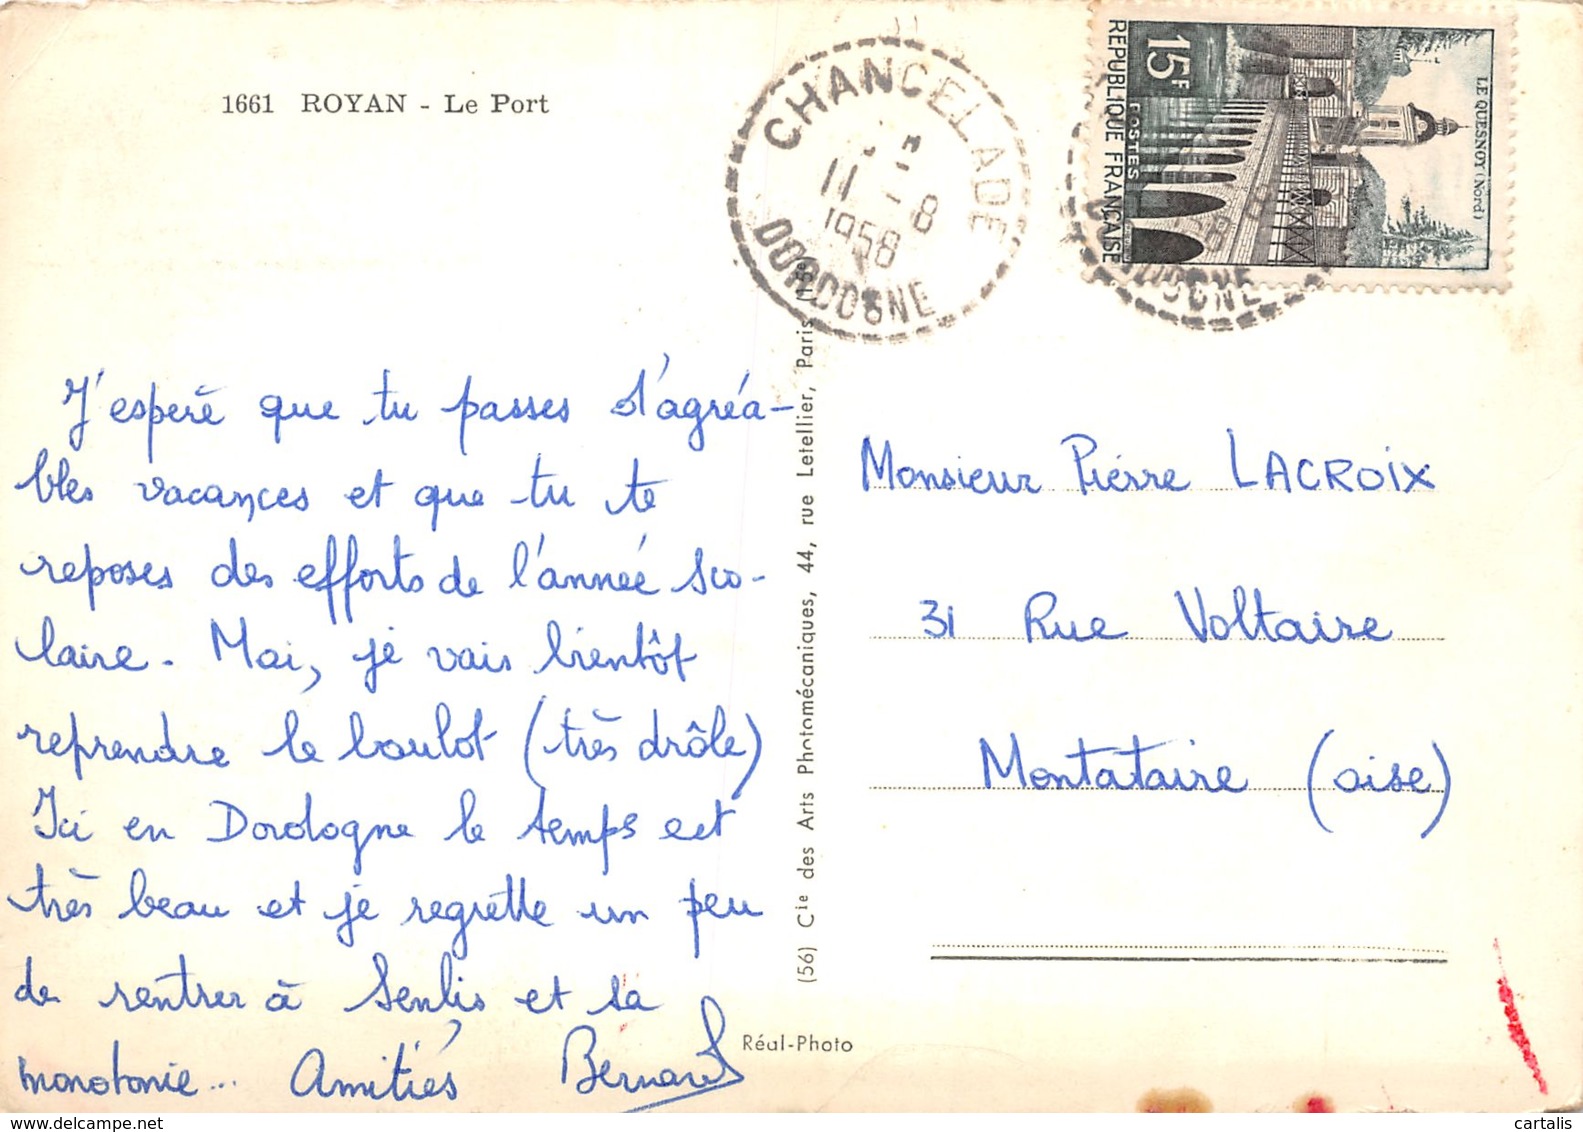 1661 ROYAN - Le Port
CHANCELADE
11 - 8
1958
DORDOGNE
15F
POSTES
REPUBLIQUE FRANÇAISE
LE QUESNOY (Nord)
58
DORDOGNE
J'espère que tu passes d'agréa-
bles vacances et que tu te
reposes des efforts de l'année sco-
laire. Moi, je vais bientôt
reprendre le boulot (très drôle)
Ici en Dordogne le temps est
très beau et je regrette un peu
de rentrer à Senlis et sa
monotonie... Amitiés Bernard
(56) Cie des Arts Photomécaniques, 44, rue Letellier, Paris 15e
Réal-Photo
Monsieur Pierre LACROIX
31 Rue Voltaire
Montataire (oise)
www.delcampe.net
cartalis